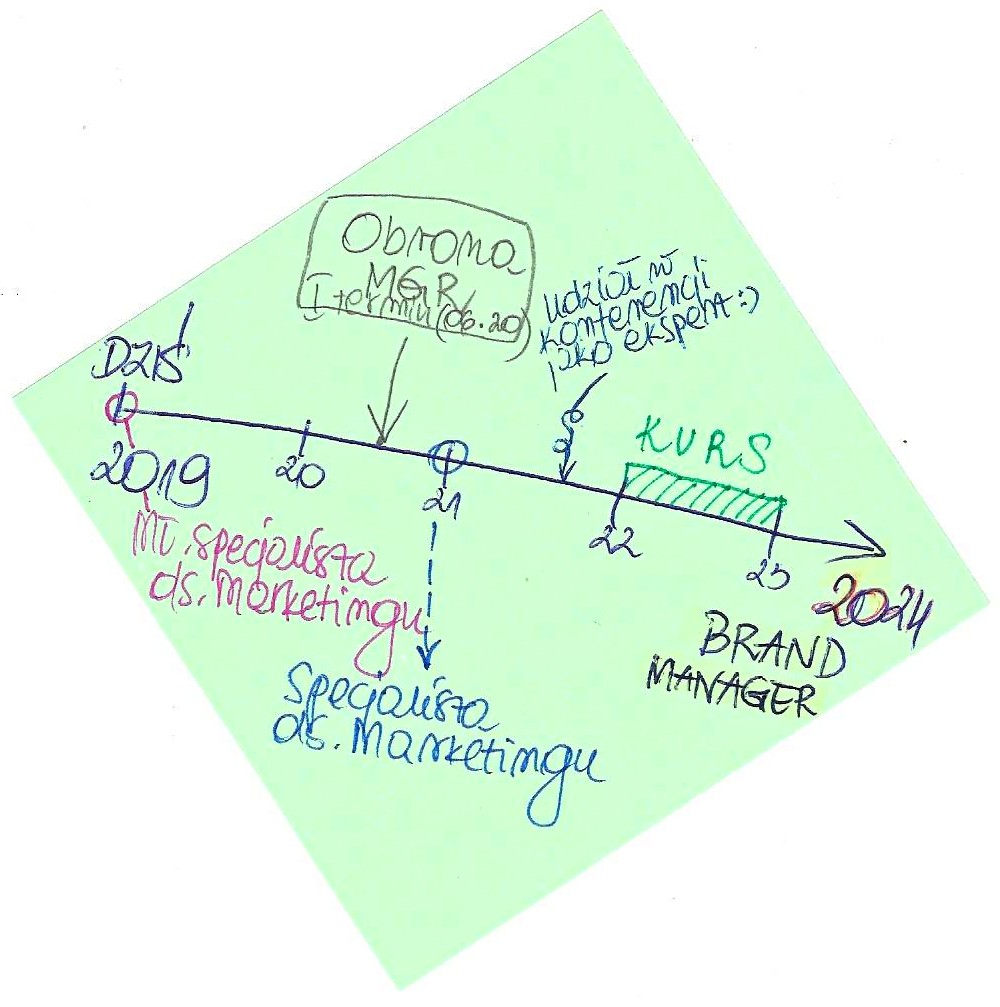 Obrona
MGR
I termin (06.20)
udział w
konferencji
jako ekspert :)
DZIŚ
KURS
2019
20
21
22
23
2024
Mł. specjalista
ds. Marketingu
BRAND
MANAGER
Specjalista
ds. Marketingu